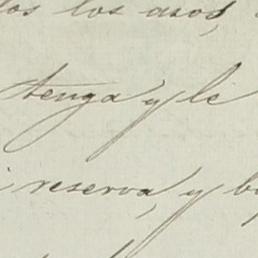 los usos,
tenga y le
reserva, y